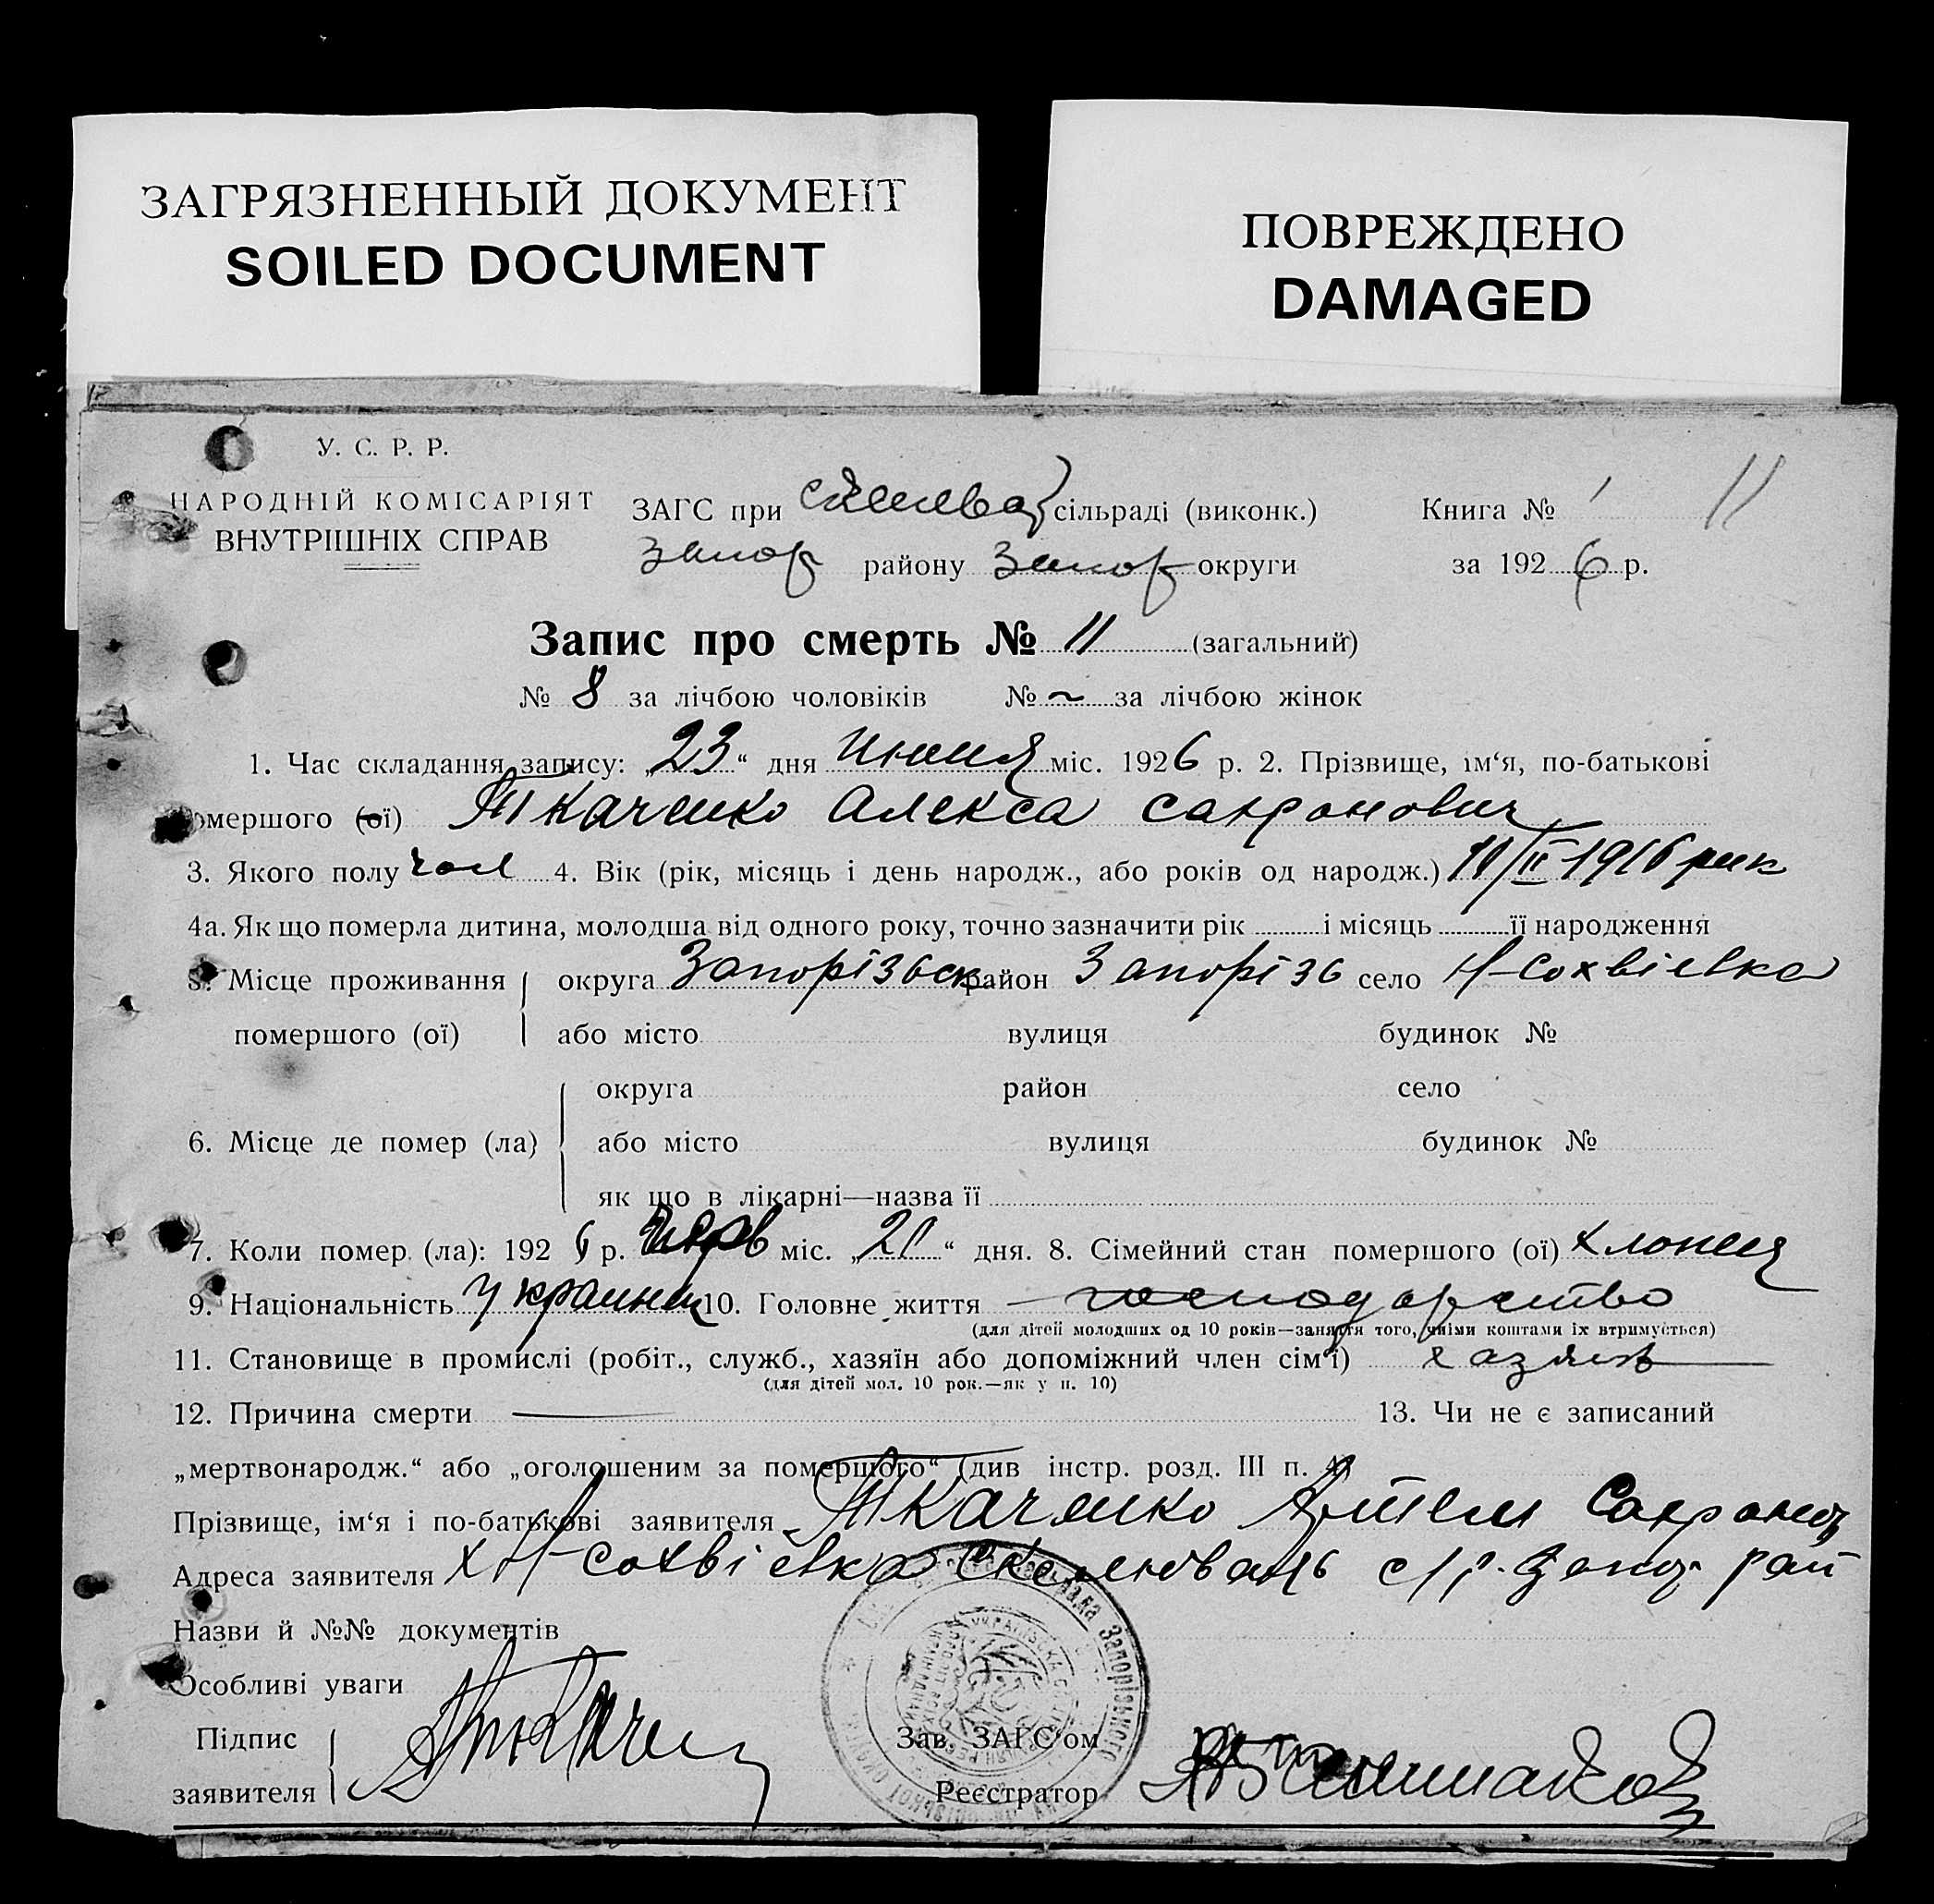 ЗАГРЯЗНЕННЫЙ ДОКУМЕНТ
SOILED DOCUMENT
ПОВРЕЖДЕНО
DAMAGED
У. С. Р. Р.
НАРОДНІЙ КОМІСАРІЯТ
ВНУТРІШНІХ СПРАВ
ЗАГС при сільраді (виконк.)
Запор району Запор округи
Книга № 1
11
за 1926 р.
Запис про смерть № 11 (загальний)
№ 8 за лічбою чоловіків № ~ за лічбою жінок
1. Час складання запису: „23“ дня міс. 1926 р. 2. Прізвище, ім‘я, по-батькові
помершого (ої) Ткаченко Алекса Сакронович
3. Якого полу чол 4. Вік (рік, місяць і день народж., або років од народж.) 11/II 1916 рик
4а. Як що померла дитина, молодша від одного року, точно зазначити рік і місяць її народження
5. Місце проживання округа Запорізьск район Запорізь село Н-Сохвіевка
помершого (ої) або місто вулиця будинок №
округа район село
6. Місце де помер (ла) або місто вулиця будинок №
як що в лікарні—назва її
7. Коли помер (ла): 1926 р. міс. „21“ дня. 8. Сімейний стан помершого (ої) хлопец
9. Національність Украинец 10. Головне життя господарство
(для дітей молодших од 10 років—заняття того, чиїми коштами їх втримується)
11. Становище в промислі (робіт., служб., хазяїн або допоміжний член сім‘ї) хазяин
(для дітей мол. 10 рок.—як у п. 10)
12. Причина смерти — 13. Чи не є записаний
„мертвонародж.“ або „оголошеним за помершого“ (див інстр. розд. III п. 4)
Прізвище, ім‘я і по-батькові заявителя Ткаченко Артем Сакронов
Адреса заявителя х Н-Сохвіевка с/р. Запор рай
Назви й №№ документів
Особливі уваги
Підпис
заявителя Ткачен
Зав. ЗАГС‘ом
Реєстратор